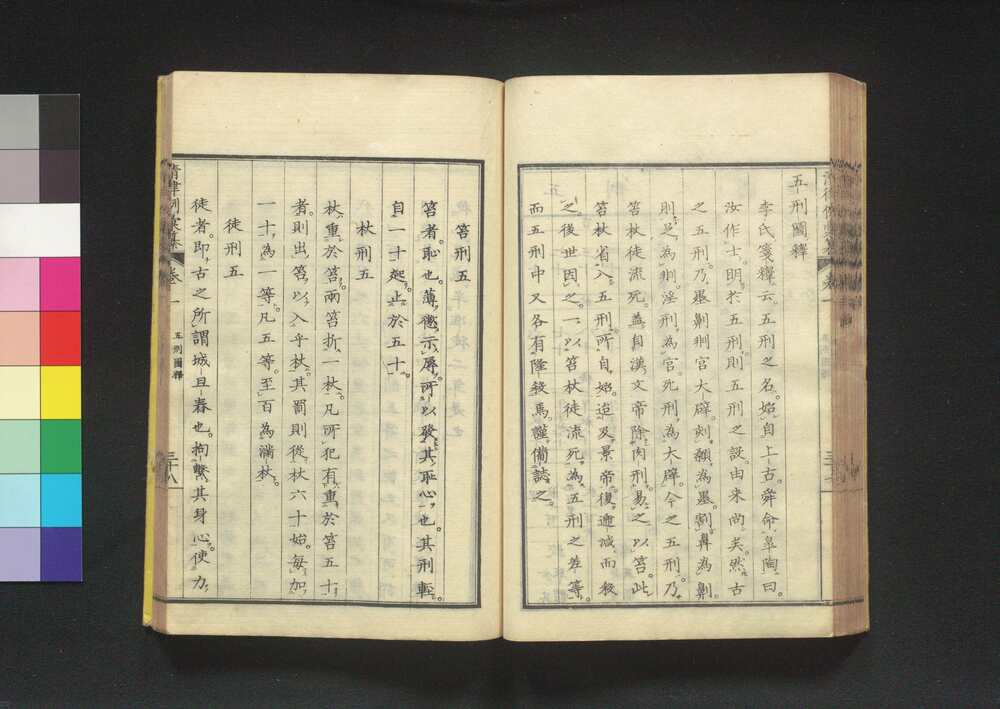 五刑圖釋
李氏箋釋云五刑之名始自上古舜命臯陶曰
汝作士明於五刑則五刑之設由来尚矣然古
之五刑乃墨劓剕宮大辟刻顙為墨割鼻為劓
刖足為剕淫刑為宮死刑為大辟今之五刑乃
笞杖徒流死蓋自漢文帝除肉刑易之以笞此
笞杖省入五刑所自始迨及景帝復遞減而殺
之後世因之一以笞杖徒流死為五刑之差等
而五刑中又各有陞殺焉謹備誌之
笞刑五
笞者恥也薄懲示辱所以發其恥心也其刑輕
自一十起止於五十
杖刑五
杖重於笞兩笞折一杖凡所犯有重於笞五十
者則出笞以入乎杖其罰則從杖六十始每加
一十為一等凡五等至百為滿杖
徒刑五
徒者即古之所謂城旦舂也拘繫其身心使力
清律例彙纂 卷一 五刑圖釋 三十八